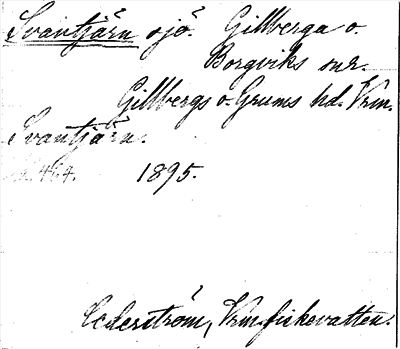 Svantjärn sjö. Gillberga o.
Borgviks snr.
Gillbergs o. Grums hd. Vrm.
Svantjärn.
464. 1895.
Cederström, Vrm. fiskevatten.